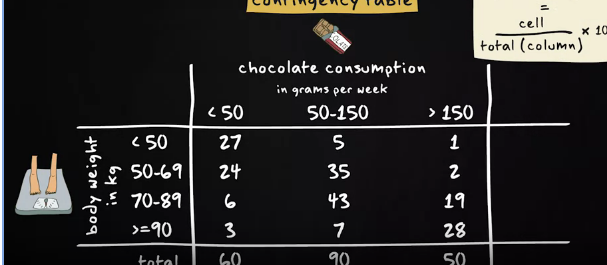 contingency table
=
cell
total (column)
× 10
chocolate consumption
in grams per week
< 50 50-150 > 150
body weight
in kg
< 50 27 5 1
50-69 24 35 2
70-89 6 43 19
>=90 3 7 28
total 60 90 50